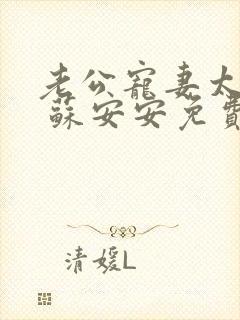 老公寵妻太
蘇安安免費
清媛L